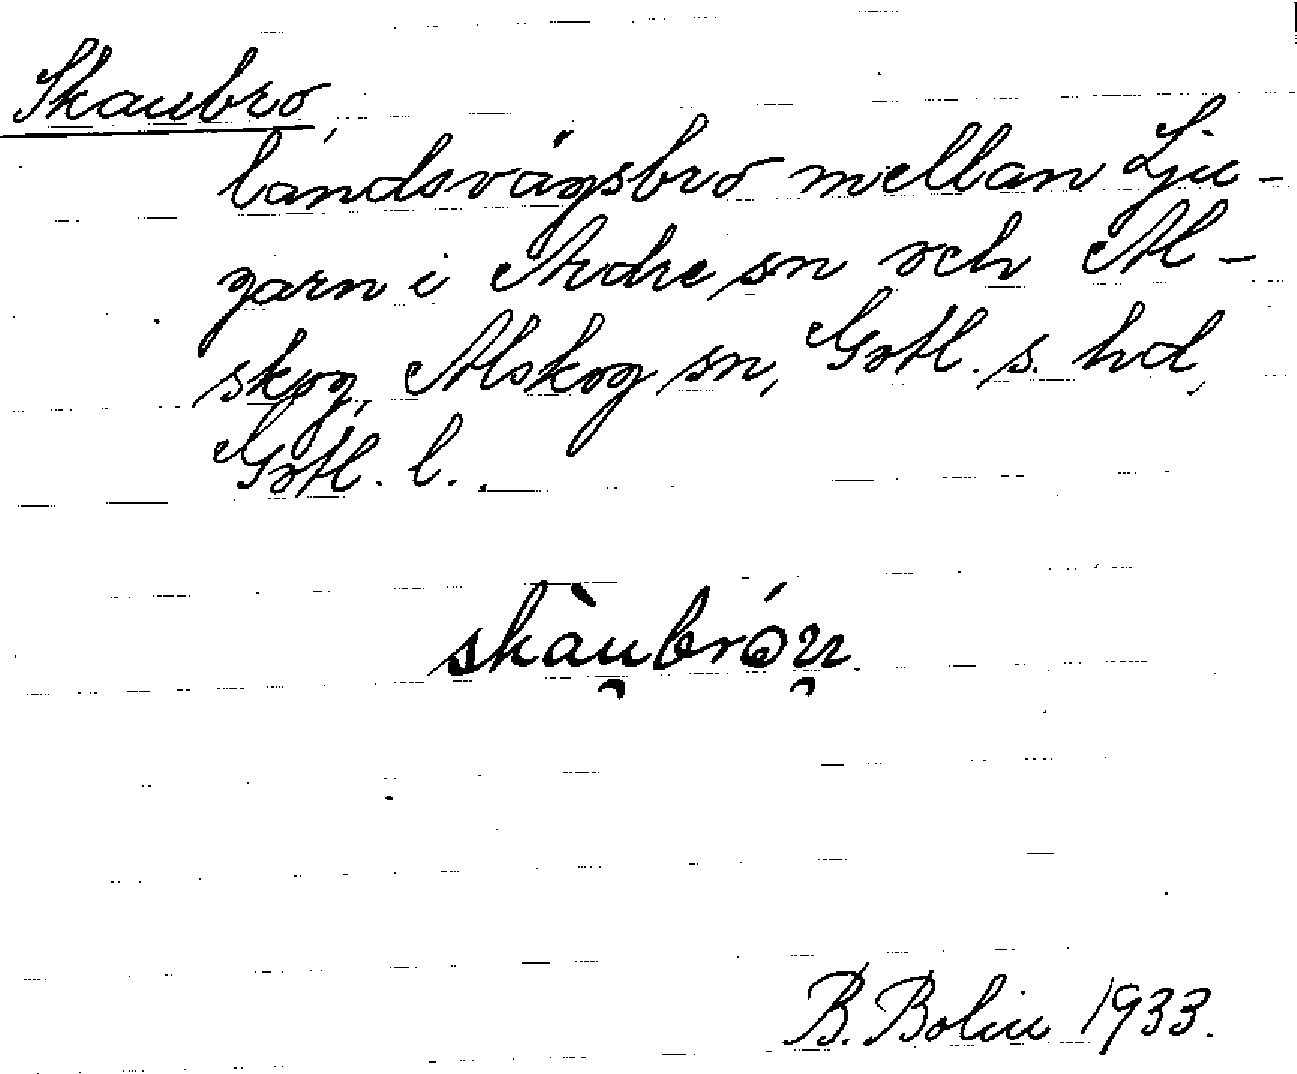 Skaubro,
landsvägsbro mellan Lju-
garn i Ardre sn och Al-
skog, Alskog sn, Gotl. s. hd,
Gotl. l.
skàu̯bróu̯.
B. Bolin 1933.